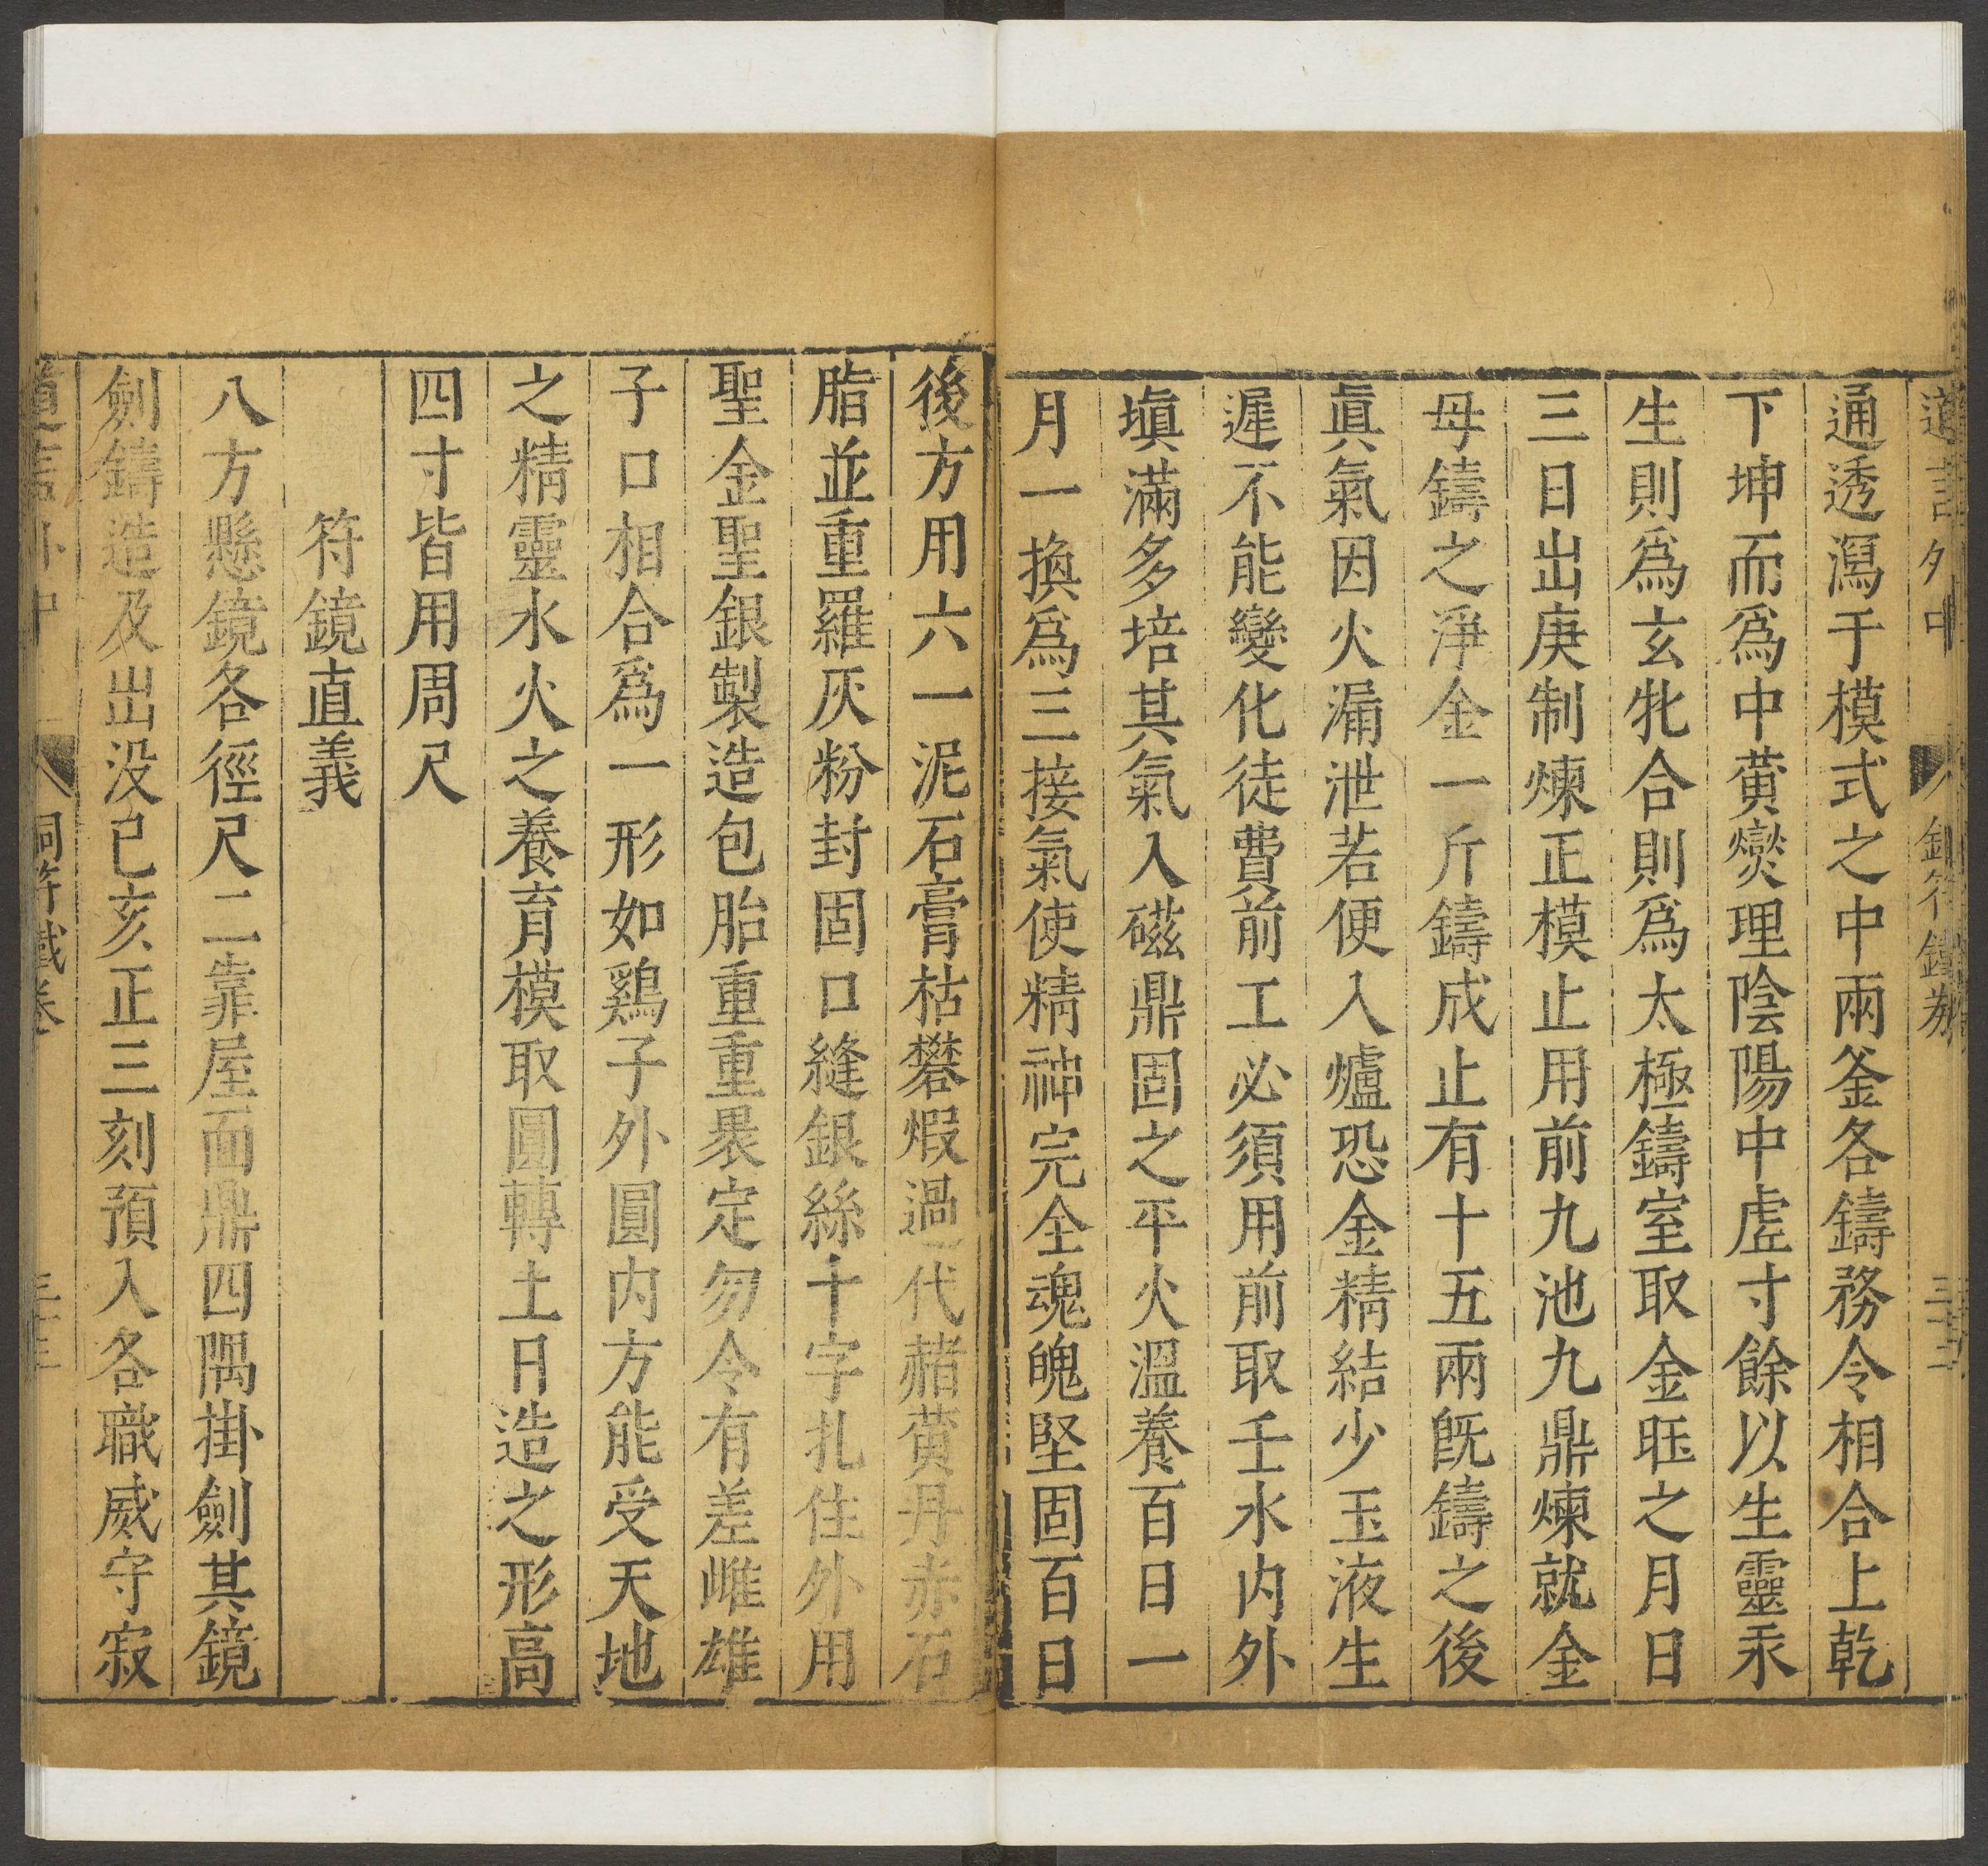 通透瀉于模式之中兩釜各鑄務令相合上乾
下坤而爲中黄爕理陰陽中虗寸餘以生靈汞
生則爲玄牝合則爲太極鑄室取金旺之月日
三日出庚制煉正模止用前九池九鼎煉就金
母鑄之淨金一斤鑄成止有十五兩旣鑄之後
眞氣因火漏泄若便入爐恐金精結少玉液生
遲不能變化徒費前工必須用前取壬水内外
塡滿多培其氣入磁鼎固之平火溫養百日一
月一換爲三接氣使精神完全魂魄堅固百日
後方用六一泥石膏枯礬煆過代赭黄丹赤石
脂並重羅灰粉封固口縫銀絲十字扎住外用
聖金聖銀製造包胎重重褁定勿令有差雌雄
子口相合爲一形如鷄子外圓内方能受天地
之精靈水火之養育模取圓轉土日造之形高
四寸皆用周尺
符鏡直義
八方懸鏡各徑尺二靠屋面鼎四隅掛劍其鏡
劍鑄造及出没已亥正三刻預入各職威守寂